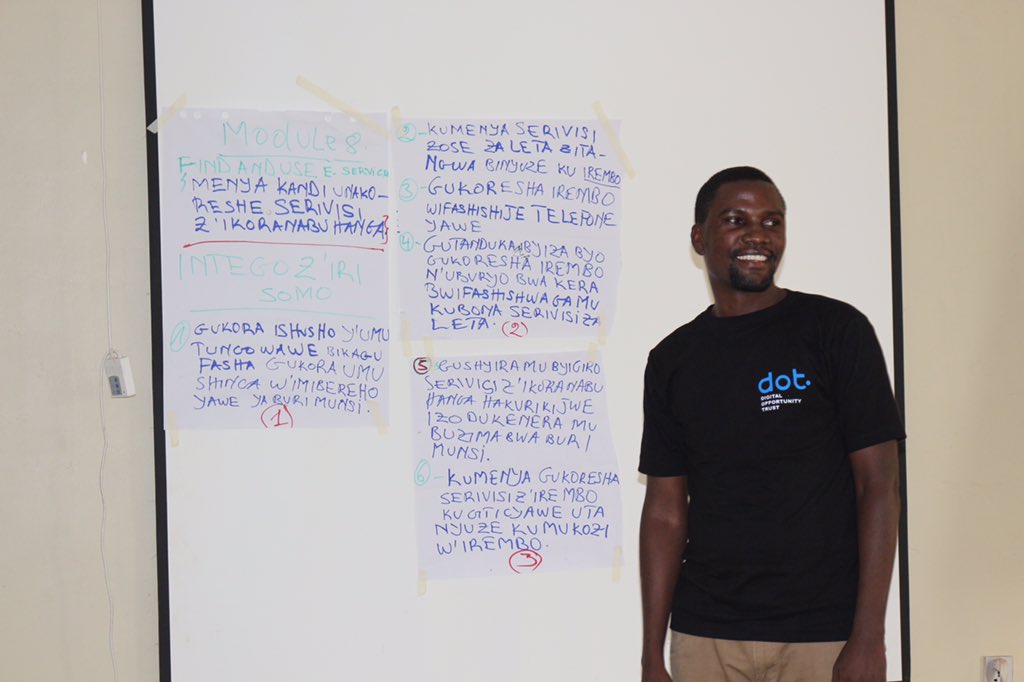 Module 8.
FIND AND USE E-SERVICE
MENYA KANDI UNAKO-
RESHE SERIVISI
Z'IKORANABUHANGA
INTEGO Z'IRI
SOMO
1 GUKORA ISHUSHO Y'UMU
TUNGO WAWE BIKAGU
FASHA GUKORA UMU
SHINGA W'IMIBEREHO
YAWE YA BURI MUNSI.
(1)
2 - KUMENYA SERIVISI
ZOSE ZA LETA BITA-
NGWA BINYUZE KU IREMBO
3 - GUKORESHA IREMBO
WIFASHISHIJE TELEFONE
YAWE
4 - GUTANDUKA BYIZA BYO
GUKORESHA IREMBO
N'UBURYO BWA KERA
BWIFASHISHWAGA MU
KUBONA SERIVISI ZA
LETA.
(2)
5 GUSHYIRA MU BYIGIKO
SERIVISI Z'IKORANABU
HANGA HAKURIKIJWE
IZO DUKENERA MU
BUZIMA BWA BURI
MUNSI.
6 - KUMENYA GUKORESHA
SERIVISI Z'IREMBO
KU GITICYAWE UTA
NYUZE KU MUKOZI
W'IREMBO.
(3)
dot.
DIGITAL
OPPORTUNITY
TRUST